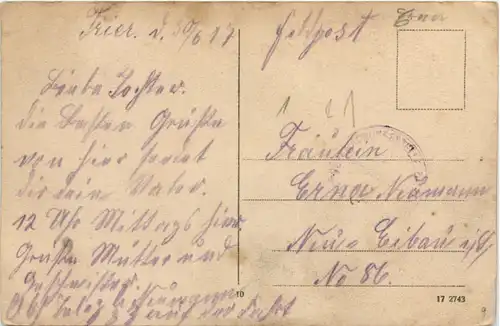 Trier, d. 30/6 17
Liebe Tochter.
die besten Grüße
von hier sendet
dir dein Vater.
12 Uhr Mittags hier
Grüße Mutter und
Geschwister
auf der Fahrt
Feldpost
Fräulein
Erna Neumann
Neu-Eibau i/S
No 86.
17 2743